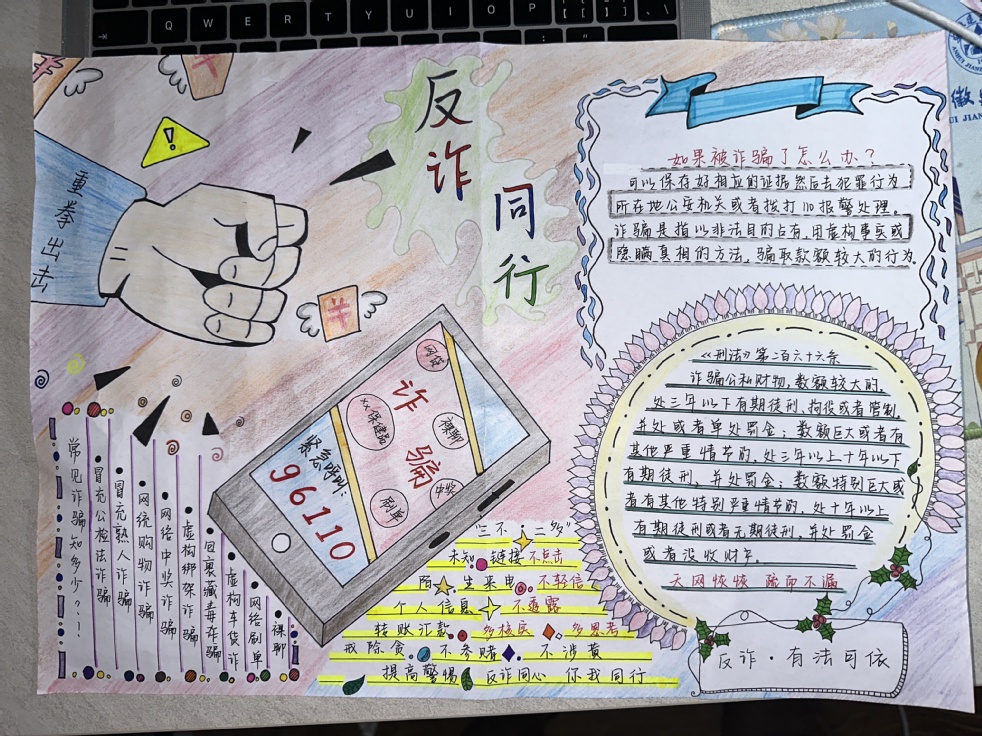 Q W E R T Y U I O P
反诈
同行
重拳出击
如果被诈骗了怎么办？
可以保存好相应的证据然后去犯罪行为
所在地公安机关或者拨打110报警处理。
诈骗是指以非法目的占有，用虚构事实或
隐瞒真相的方法，骗取款额较大的行为。
《刑法》第二百六十六条
诈骗公私财物，数额较大的，
处三年以下有期徒刑、拘役或者管制，
并处或者单处罚金；数额巨大或者有
其他严重情节的，处三年以上十年以下
有期徒刑，并处罚金；数额特别巨大或
者有其他特别严重情节的，处十年以上
有期徒刑或者无期徒刑，并处罚金
或者没收财产。
天网恢恢 疏而不漏
反诈·有法可依
诈骗
网贷
保健品
裸聊
刷单
中奖
紧急呼叫：
96110
常见诈骗知多少？：！
冒充公检法诈骗
冒充熟人诈骗
网络购物诈骗
网络中奖诈骗
虚构绑架诈骗
包裹藏毒诈骗
虚构车货诈
网络刷单
裸聊
"三不一多"
未知链接不点击
陌生来电不轻信
个人信息不透露
转账汇款多核实多思考
戒除贪 不参赌 不涉黄
提高警惕 反诈同心 你我同行